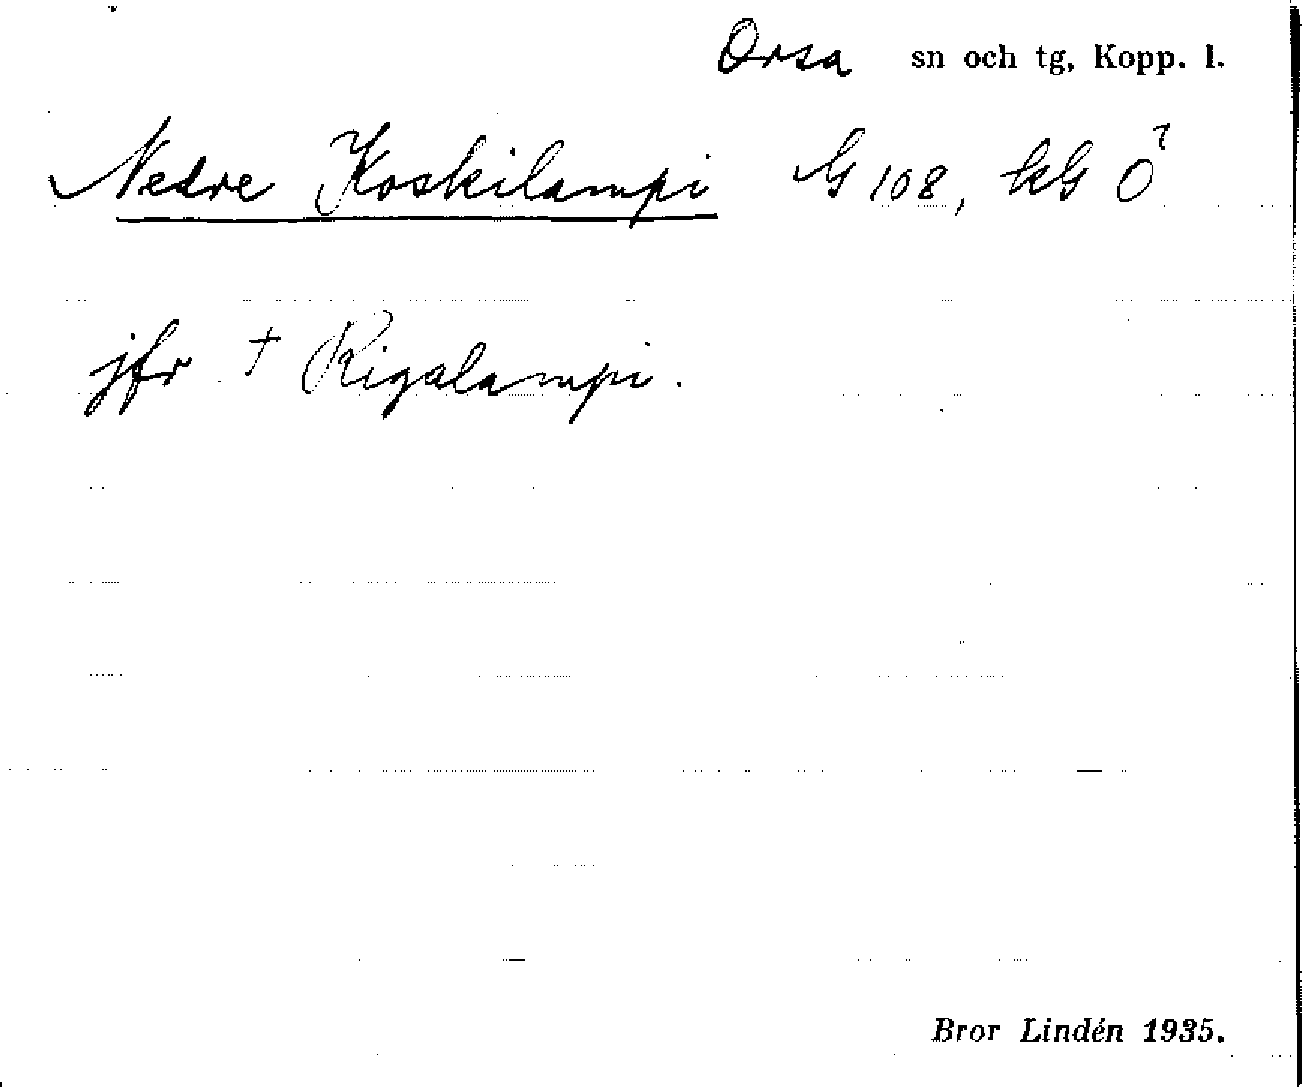 Orsa sn och tg, Kopp. l.
Nedre Koskilampi G 108, kG Ö
jfr † Rigalampi.
Bror Lindén 1935.